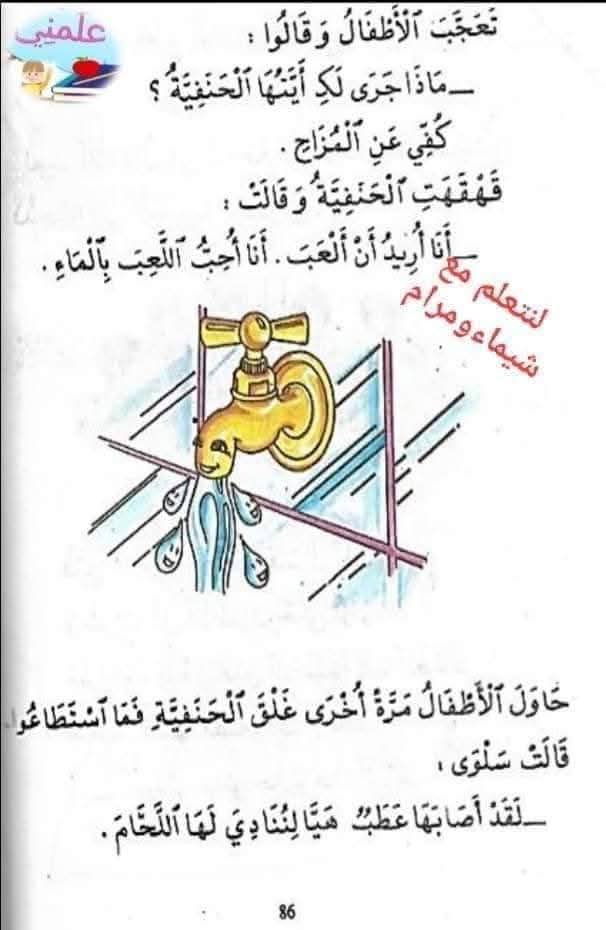 علمني
تَعَجَّبَ ٱلْأَطْفَالُ وَ قَالُوا :
ــ مَاذَا جَرَى لَكِ أَيَّتُهَا ٱلْحَنَفِيَّةُ ؟
كُفِّي عَنِ ٱلْمُزَاحِ .
قَهْقَهَتِ ٱلْحَنَفِيَّةُ وَ قَالَتْ :
ــ أَنَا أُرِيدُ أَنْ أَلْعَبَ . أَنَا أُحِبُّ ٱللَّعِبَ بِٱلْمَاءِ .
لنتعلم مع
شيماء و مرام
حَاوَلَ ٱلْأَطْفَالُ مَرَّةً أُخْرَى غَلْقَ ٱلْحَنَفِيَّةِ فَمَا ٱسْتَطَاعُوا .
قَالَتْ سَلْوَى :
ــ لَقَدْ أَصَابَهَا عَطَبٌ هَيَّا لِنُنَادِيَ لَهَا ٱللَّحَّامَ .
86